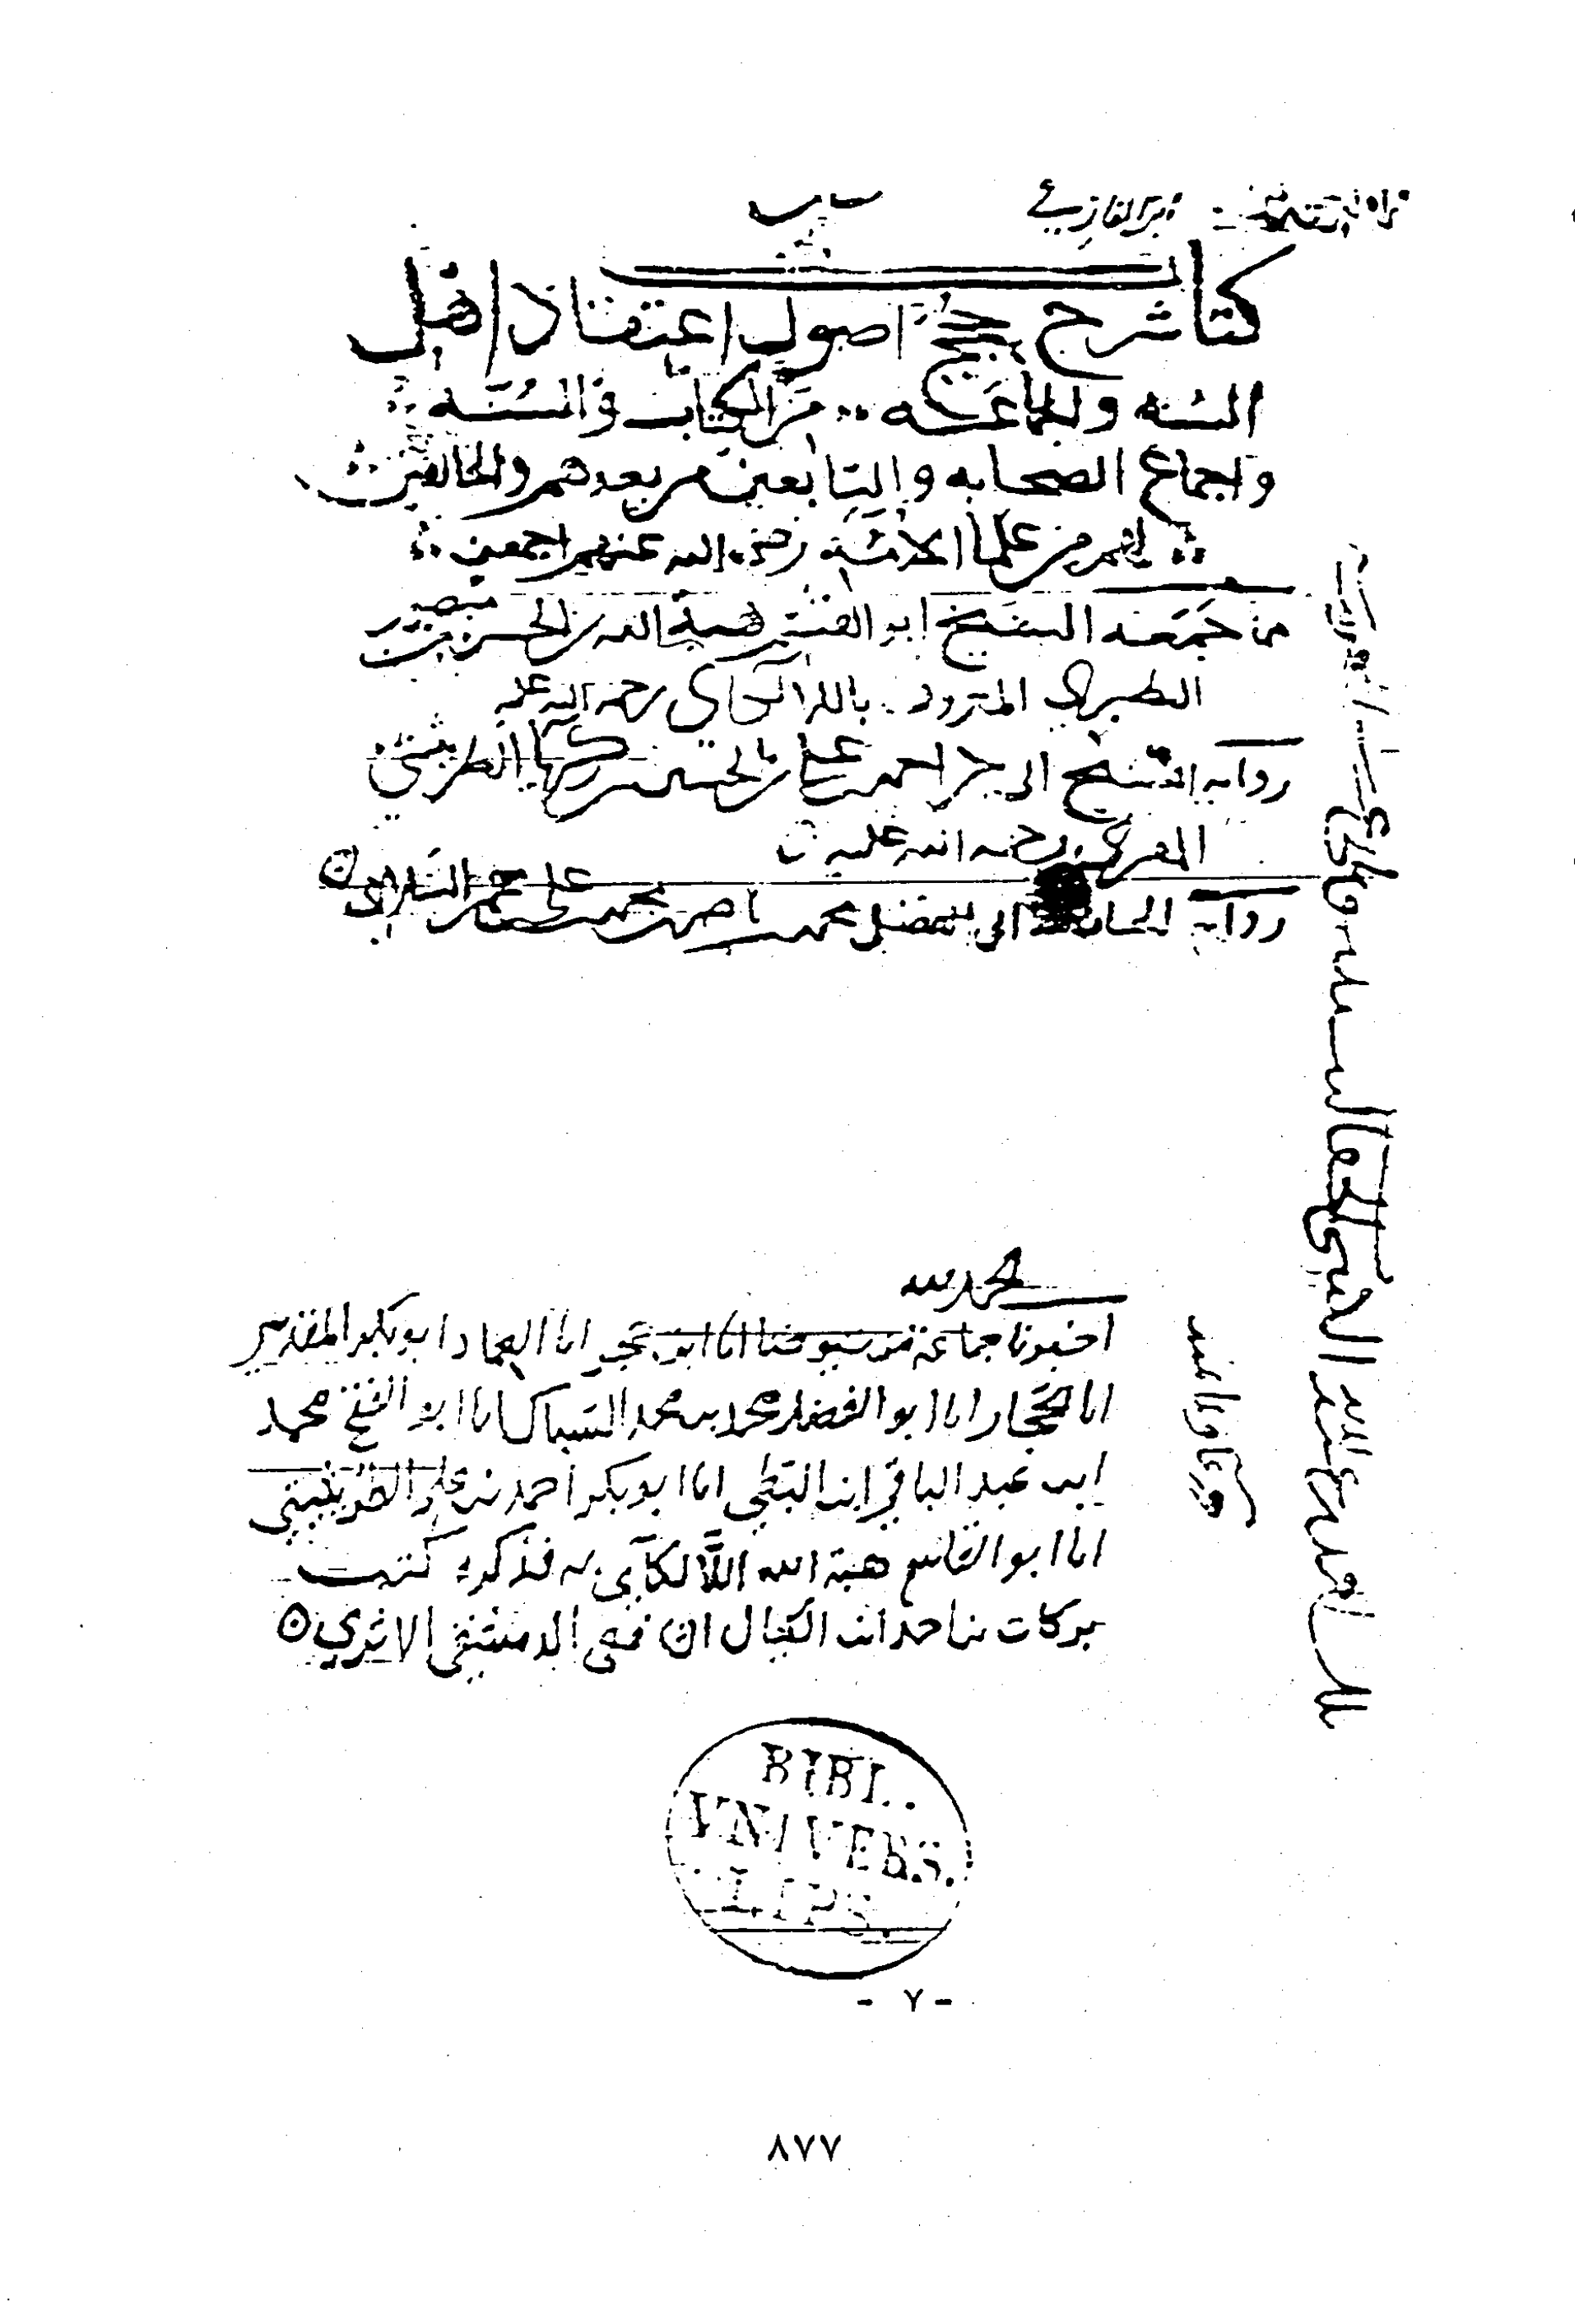 كتاب شرح حجج اصول اعتقاد اهل
السنه والجماعه من الكتاب والسنه
واجماع الصحابه والتابعين من بعدهم والخالفين
لهم من علما الامة رضي الله عنهم اجمعين
مما جمعه الشيخ ابو القسم هبة الله بن الحسن بن منصور
الطبري المعروف باللالكاي رحمه الله عليه
روايه الشيخ ابي بكر احمد بن علي بن الحسين بن زكريا الطريثيثي
المقري رحمه الله عليه
روايه الحافظ ابي الفضل محمد بن ناصر بن محمد بن علي بن عمر السلامي
الحمد لله
اخبرنا جماعة من شيوخنا انا ابن حجر انا العماد ابو بكر المقدسي
انا الحجار انا ابو الفضل محمد بن محمد السباك انا ابو الفتح محمد
ابن عبد الباقي ابن البطي انا ابو بكر احمد بن علي الطريثيثي
انا ابو القاسم هبة الله اللالكآي به فذكره كتبت
بركات بن احمد ابن الكيال الدمشقي الاثري
BIBL.
VNIVERS.
LIPS.
- ٧ -
٨٧٧